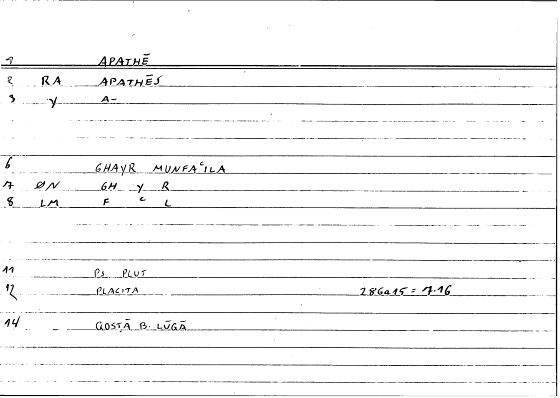 1 APATHĒ
2 RA APATHĒS
3 y A-
6 GHAYR MUNFAʿILA
7 ØN GH y R
8 LM F ʿ L
11 Ps PLUT
12 PLACITA 286a15 = 7.16
14 - QOSṬĀ B. LŪGĀ